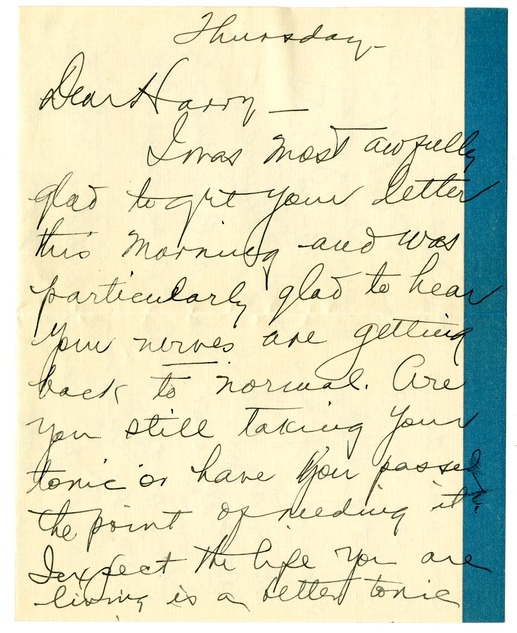 Thursday-
Dear Harry —
I was most awfully
glad to get your letter
this morning and was
particularly glad to hear
your nerves are getting
back to normal. Are
you still taking your
tonic or have you passed
the point of needing it?
I expect the life you are
living is a better tonic